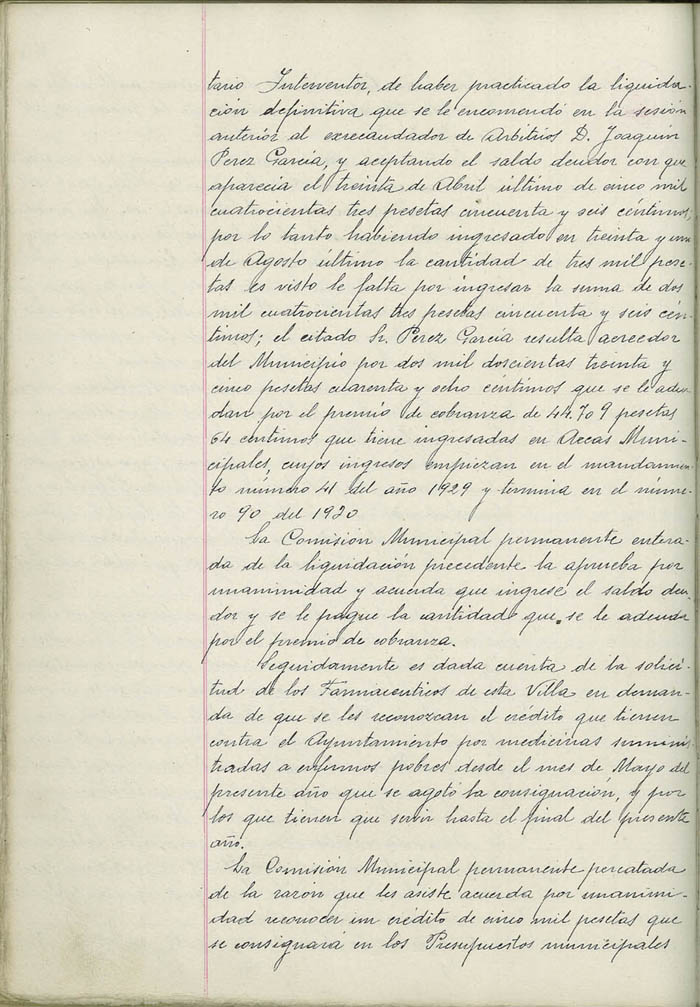 tario Interventor, de haber practicado la liquida-
ción definitiva que se le encomendó en la sesión
anterior al exrecaudador de Arbitrios D. Joaquín
Perez García, y aceptando el saldo deudor con que
aparecia el treinta de Abril último de cinco mil
cuatrocientas tres pesetas cincuenta y seis céntimos,
por lo tanto habiendo ingresado en treinta y uno
de Agosto último la cantidad de tres mil pese-
tas es visto le falta por ingresar la suma de dos
mil cuatrocientas tres pesetas cincuenta y seis cén-
timos; el citado Sr. Perez García resulta acreedor
del Municipio por dos mil doscientas treinta y
cinco pesetas cuarenta y ocho céntimos que se le adeu-
dan por el premio de cobranza de 44.709 pesetas
64 centimos que tiene ingresadas en Arcas Muni-
cipales, cuyos ingresos empiezan en el mandamien-
to número 41 del año 1929 y termina en el núme-
ro 90 del 1930
La Comisión Municipal permanente entera-
da de la liquidación precedente la aprueba por
unanimidad y acuerda que ingrese el saldo deu-
dor y se le pague la cantidad que se le adeuda
por el premio de cobranza.
Seguidamente es dada cuenta de la solici-
tud de los Farmaceuticos de esta Villa en deman-
da de que se les reconozcan el crédito que tienen
contra el Ayuntamiento por medicinas suminis
tradas a enfermos pobres desde el mes de Mayo del
presente año que se agotó la consignación, y por
los que tienen que servir hasta el final del presente
año.
La Comisión Municipal permanente percatada
de la razón que les asiste acuerda por unanimi-
dad reconocer un crédito de cinco mil pesetas que
se consignará en los Presupuestos municipales